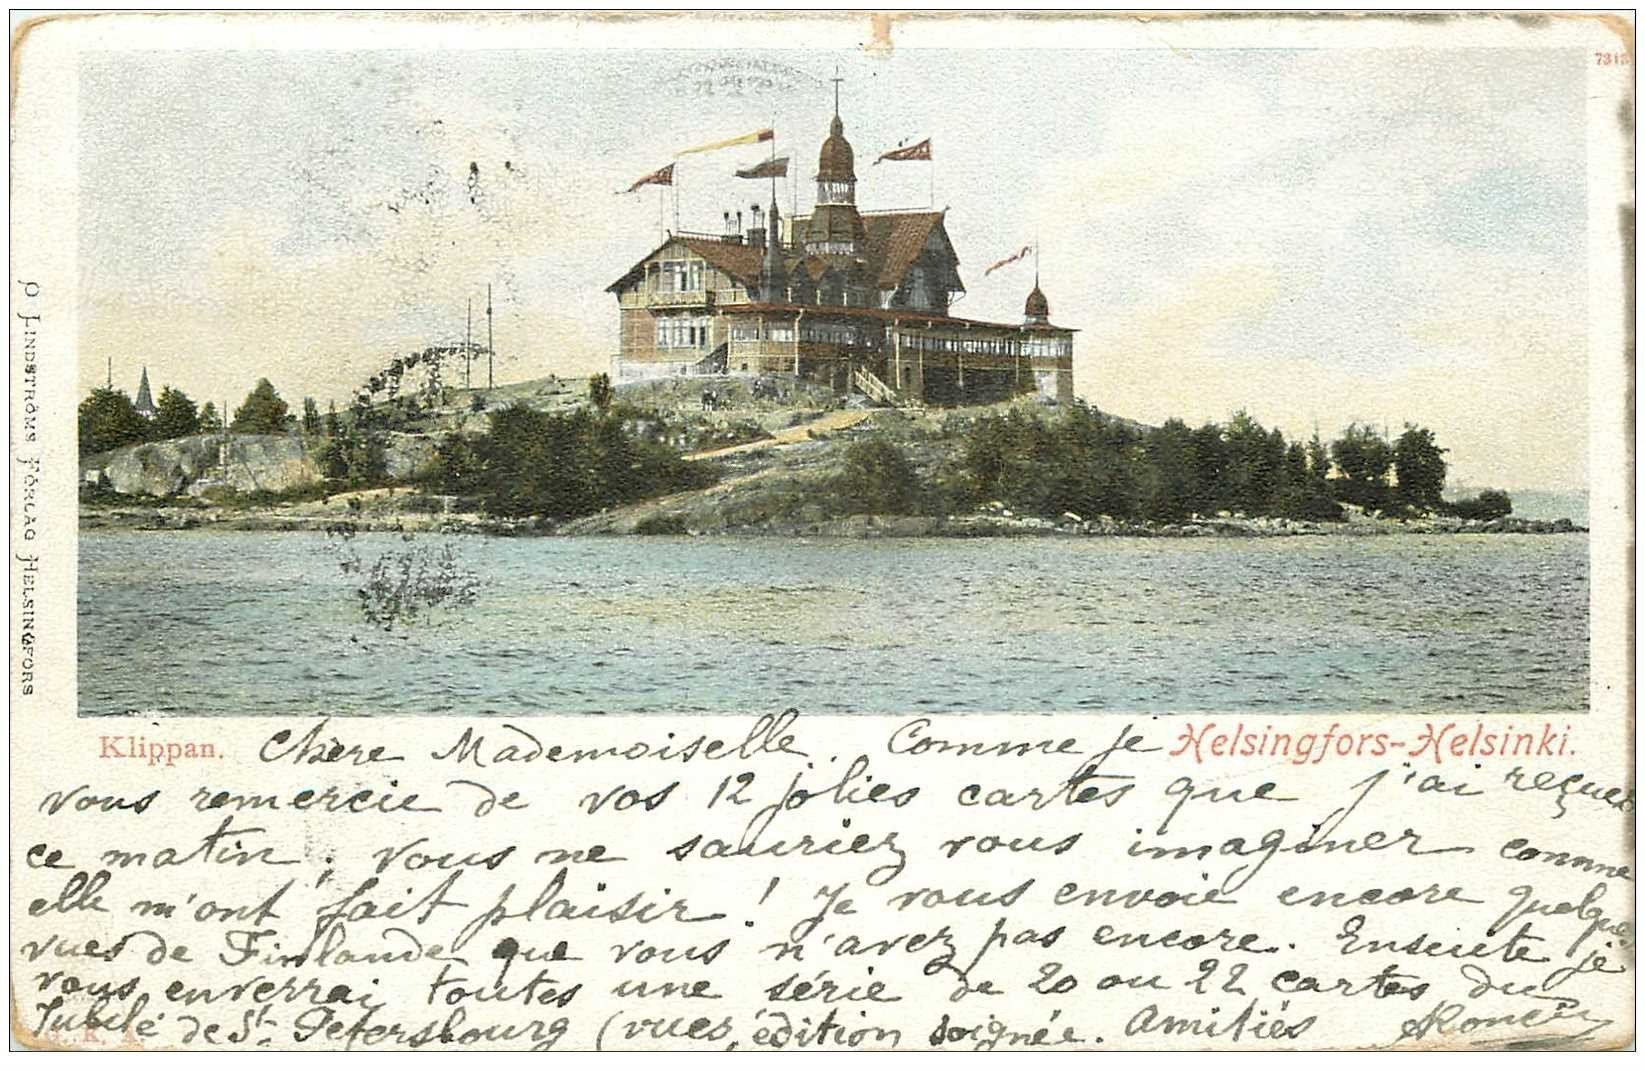 7313
O LINDSTRÖMS FÖRLAG HELSINGFORS
Klippan. Chère Mademoiselle. Comme je Helsingfors-Helsinki.
vous remercie de vos 12 jolies cartes que j'ai reçues
ce matin; vous ne sauriez vous imaginer comme
elle m'ont fait plaisir! Je vous envoie encore quelques
vues de Finlande que vous n'avez pas encore. Ensuite je
vous enverrai toutes une série de 20 ou 22 cartes du
Jubilé de St. Petersbourg (vues, édition soignée. Amitiés